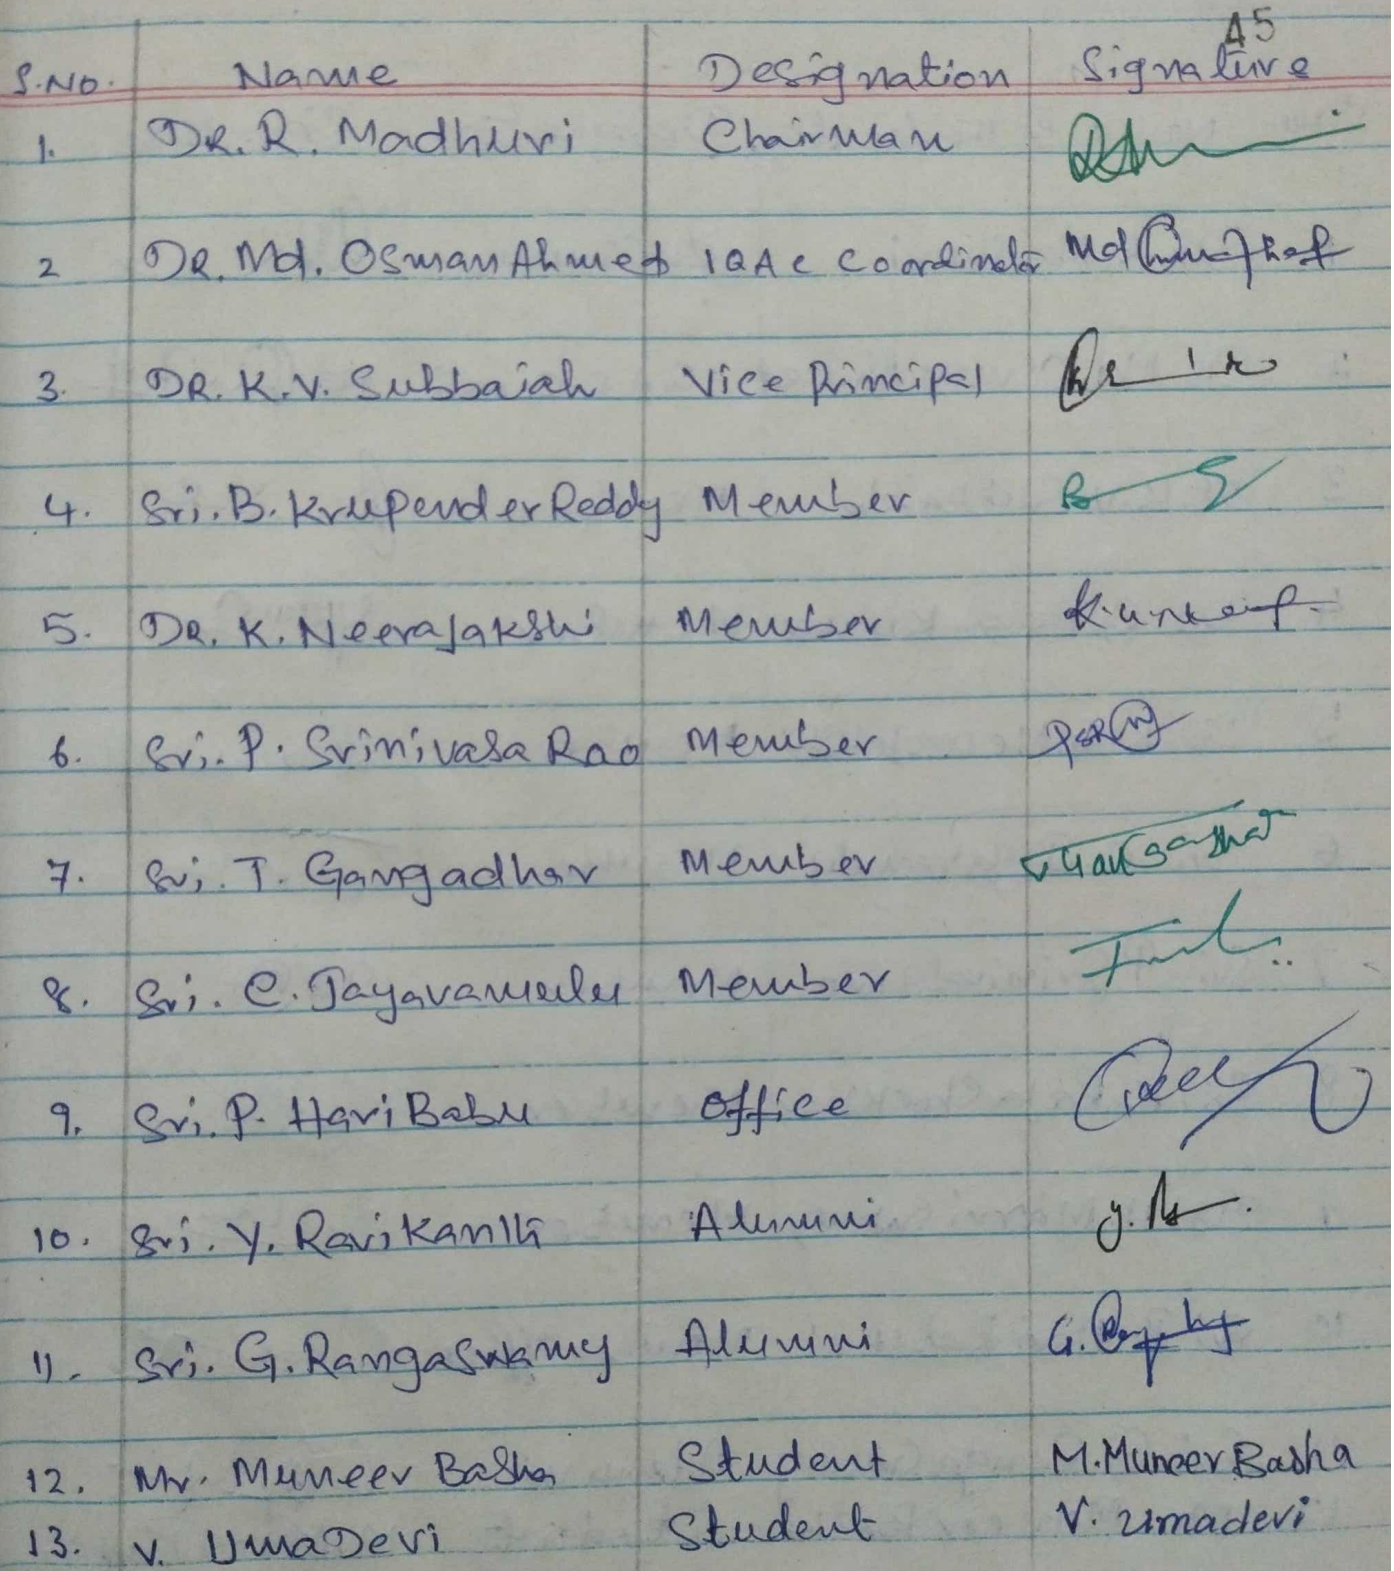 45
S.No. Name Designation Signature
1. DR. R. Madhuri Chairman
2 DR. Md. Osman Ahmed IQAC Coordinator Md
3. DR. K.V. Subbaiah Vice Principal
4. Sri. B. Krupender Reddy Member
5. DR. K. Neerajakshi Member
6. Sri. P. Srinivasa Rao Member PSR
7. Sri. T. Gangadhar Member
8. Sri. C. Jayavamulu Member
9. Sri. P. Hari Babu Office
10. Sri. Y. Ravi Kanth Alumni
11. Sri. G. Rangaswamy Alumni G.
12. Mr. Muneer Basha Student M. Muneer Basha
13. V. Uma Devi Student V. Umadevi